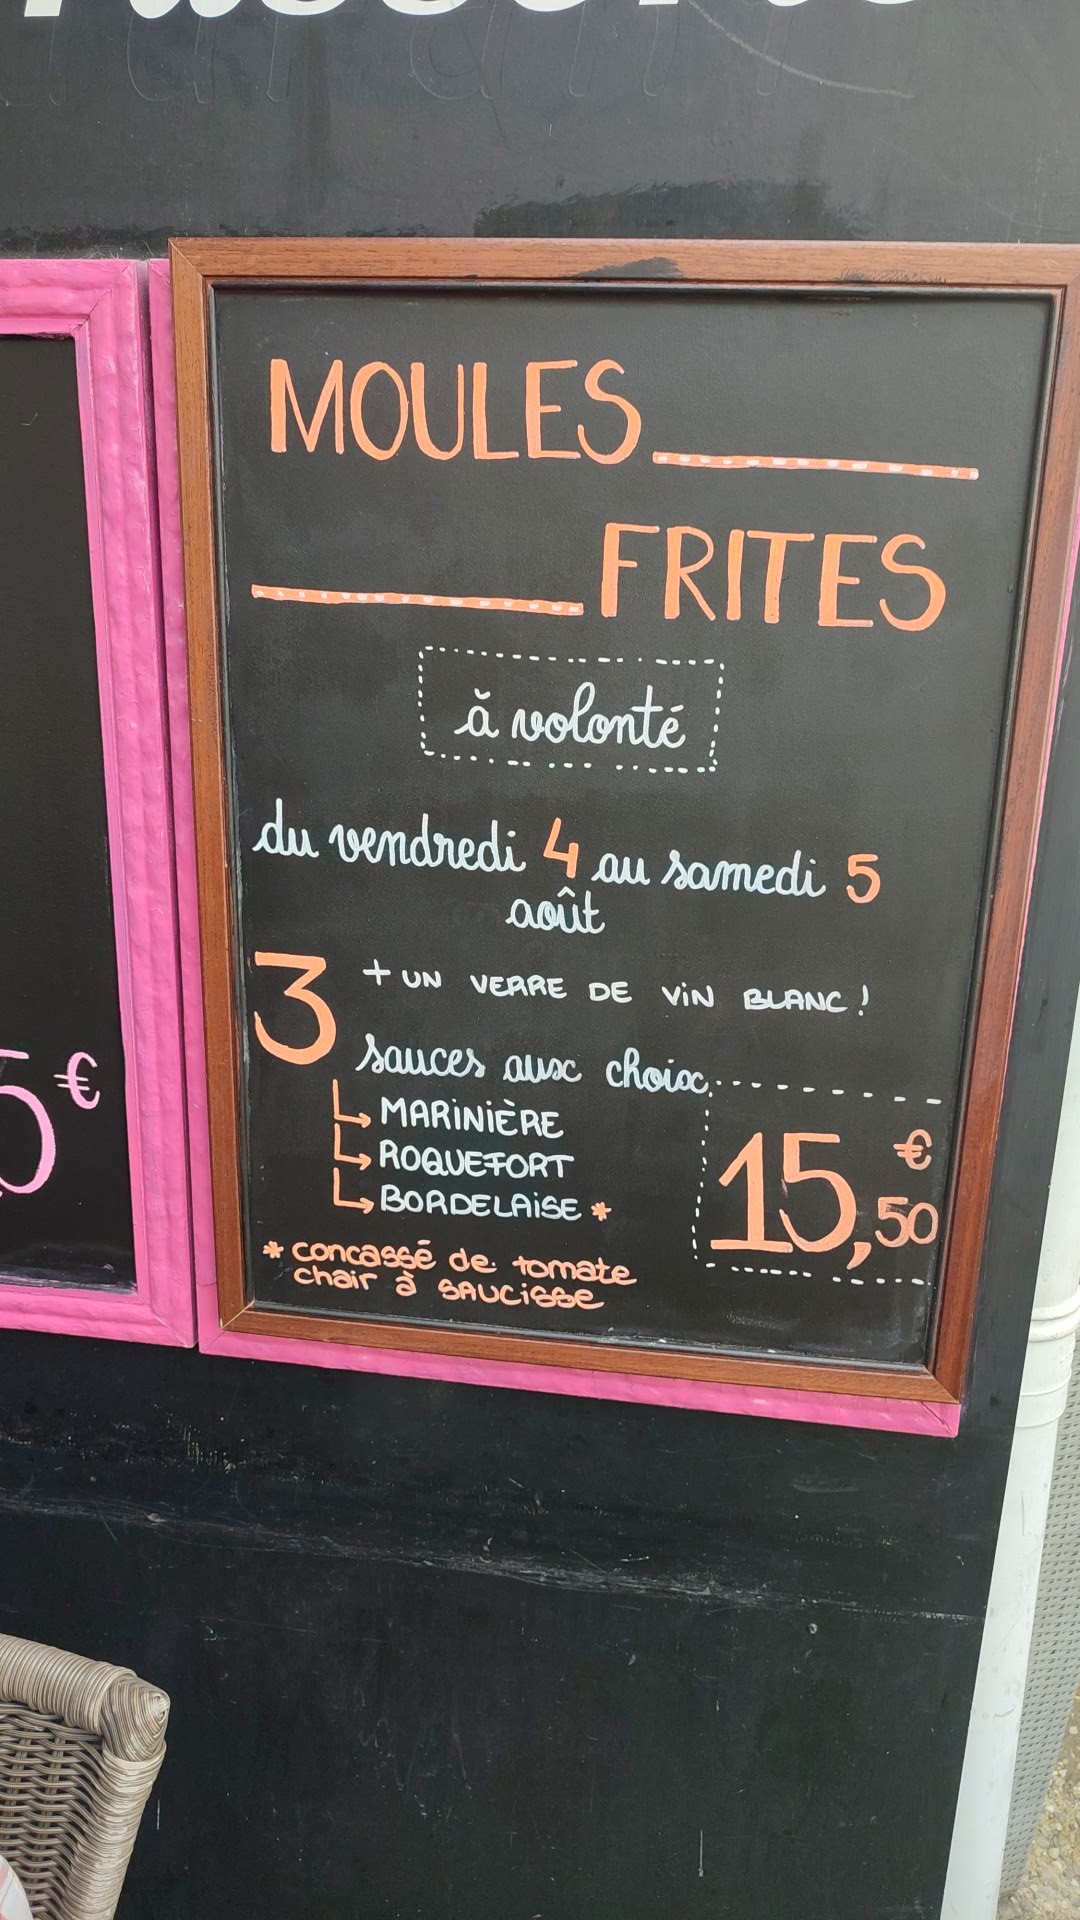 MOULES
FRITES
à volonté
du vendredi 4 au samedi 5
août
+ UN VERRE DE VIN BLANC !
3 sauces aux choix
MARINIÈRE
ROQUEFORT
BORDELAISE *
15,50 €
* concassé de tomate
chair à saucisse
5 €